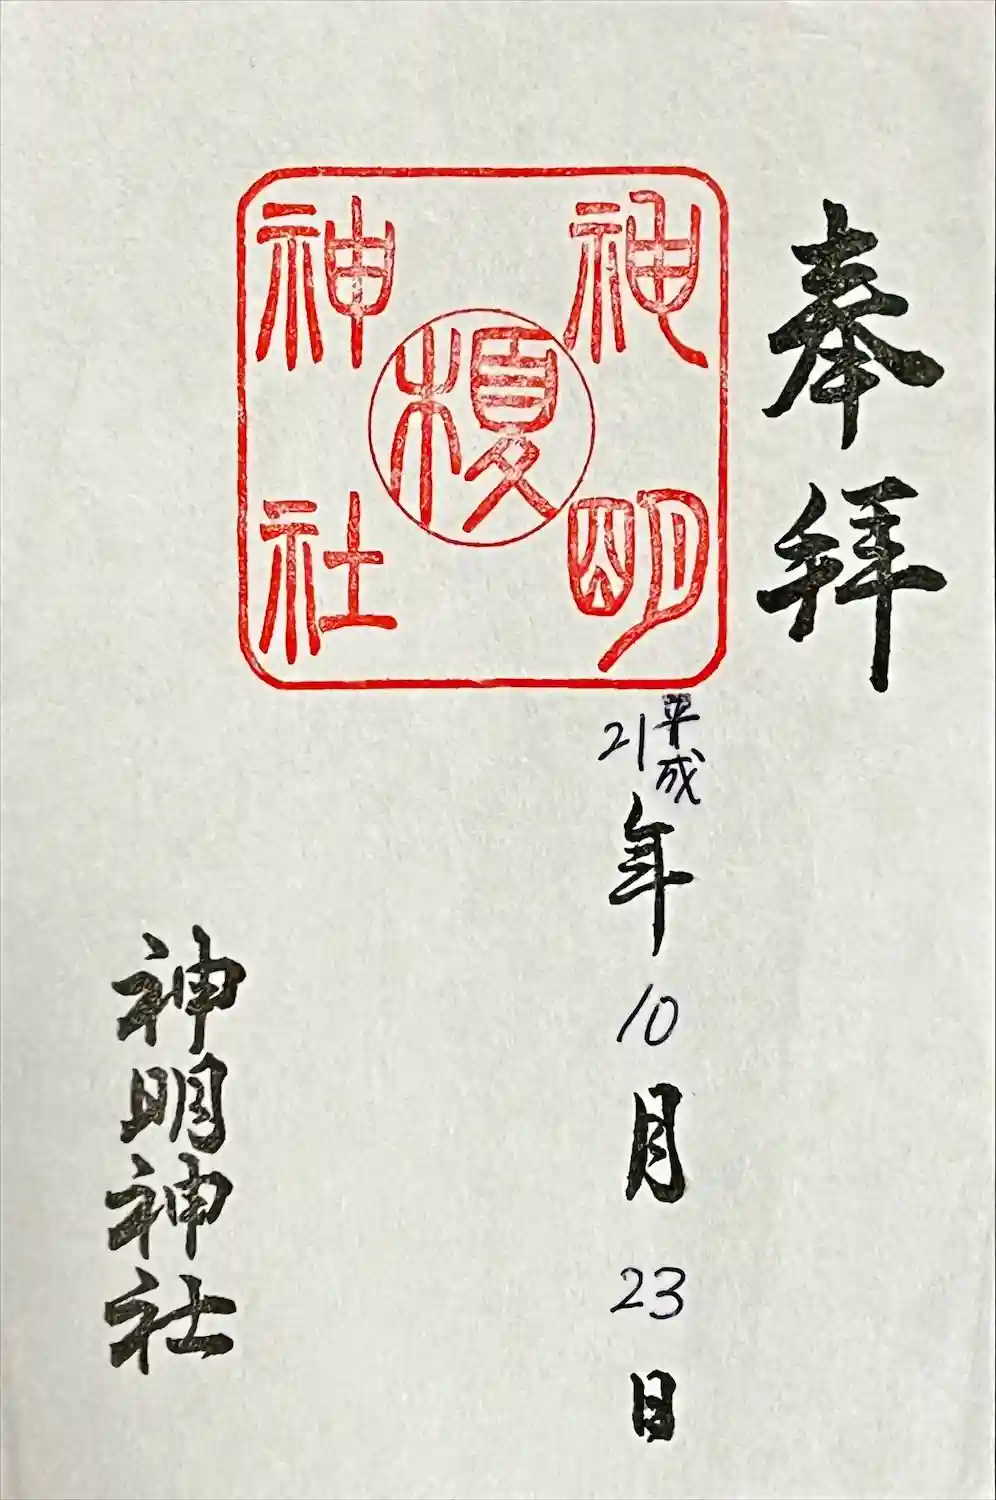 奉拝
神明
榎
神社
平成
21年10月23日
神明神社